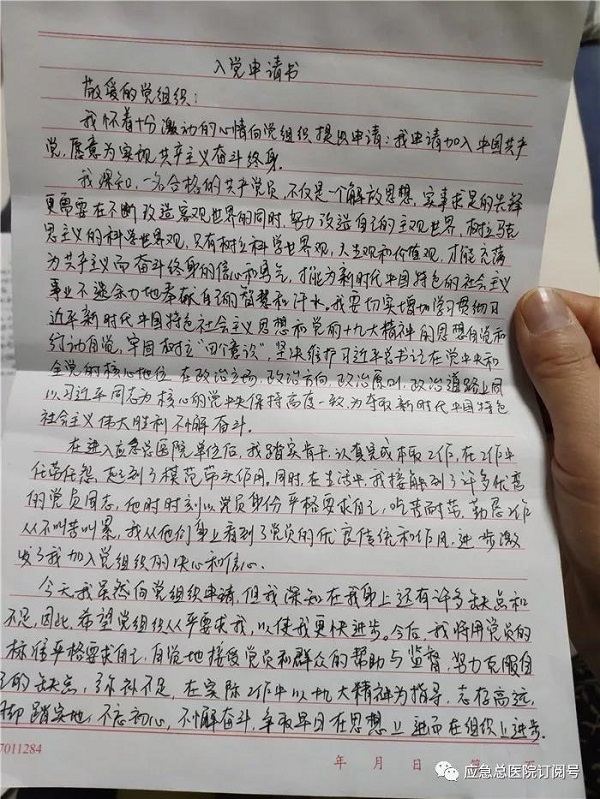 入党申请书
敬爱的党组织:
我怀着十分激动的心情向党组织提出申请:我申请加入中国共产
党,愿意为实现共产主义奋斗终身。
我深知,一名合格的共产党员,不仅是一个解放思想,实事求是的先锋
更需要在不断改造客观世界的同时,努力改造自己的主观世界,树立马克
思主义的科学世界观,只有树立科学世界观,人生观和价值观,才能充满
为共产主义而奋斗终身的信心和勇气,才能为新时代中国特色的社会主义
事业不遗余力地奉献自己的智慧和汗水。我要切实增加学习贯彻习
近平新时代中国特色社会主义思想和党的十九大精神的思想自觉和
行动自觉,牢固树立"四个意识",坚决维护习近平总书记在党中央和
全党的核心地位,在政治立场,政治方向,政治原则,政治道路上同
以习近平同志为核心的党中央保持高度一致,为夺取新时代中国特色
社会主义伟大胜利不懈奋斗。
在进入应急总医院单位后,我踏实肯干,认真完成本职工作,在工作中
任劳任怨,起到了模范带头作用,同时,在生活中,我接触到了许多优秀
的党员同志,他们时时刻刻以党员身份严格要求自己,吃苦耐劳,勤恳工作
从不叫苦叫累,我从他们身上看到了党员的优良传统和作风,进一步激
发了我加入党组织的决心和信心。
今天我虽然向党组织申请,但我深知在我身上还有许多缺点和
不足,因此,希望党组织从严要求我,以使我更快进步。今后,我将用党员的
标准严格要求自己,自觉地接受党员和群众的帮助与监督,努力克服自
己的缺点,弥补不足,在实际工作中以十九大精神为指导,志存高远,
脚踏实地,不忘初心,不懈奋斗,争取早日在思想上,进而在组织上进步。
7011284
年 月 日 第 页
应急总医院订阅号